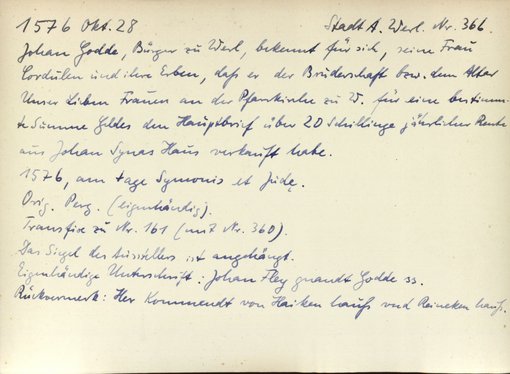 1576 Okt. 28 Stadt A. Werl. Nr. 366.
Johan Godde, Bürger zu Werl, bekennt für sich, seine Frau
Cordulen und ihre Erben, daß er der Bruderschaft bzw. dem Altar
Unser Lieben Frauen an der Pfarrkirche zu W. für eine bestimm-
te Summe Geldes den Hauptbrief über 20 Schillinge jährlicher Rente
aus Johan Synas Haus verkauft habe.
1576, am tage Symonis et Judę.
Orig. Perg. (eigenhändig).
Transfix zu Nr. 161 (mit Nr. 360).
Das Siegel des Ausstellers ist angehängt.
Eigenhändige Unterschrift: Johan Fley gnandt Godde ss.
Rückvermerk: Her Kommendt von Haiken hauß und Reineken hauß.